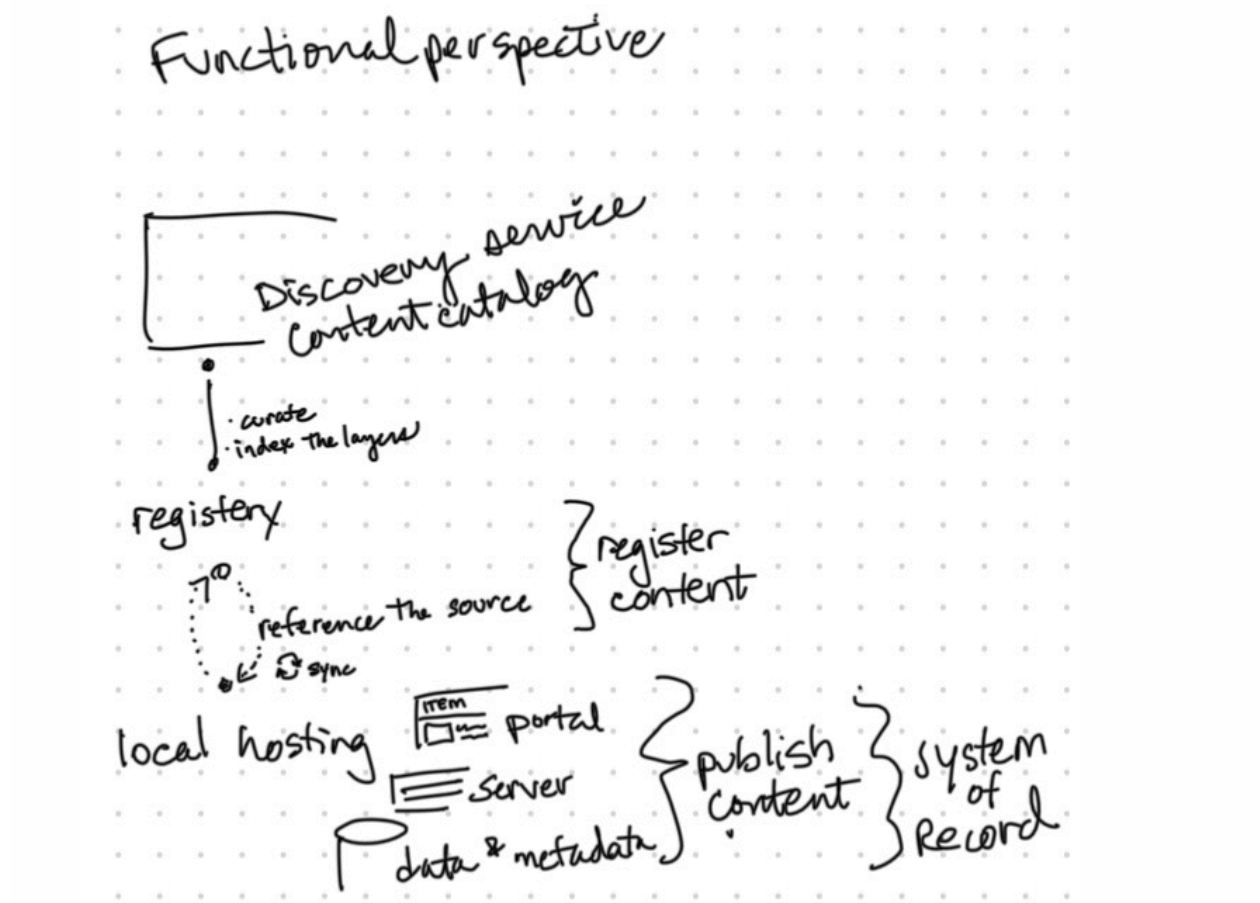 Functional perspective
Discovery service
Content catalog
· curate
· index the layers
registery
register
content
reference the source
sync
local hosting
ITEM
portal
server
data & metadata
publish
content
system
of
Record